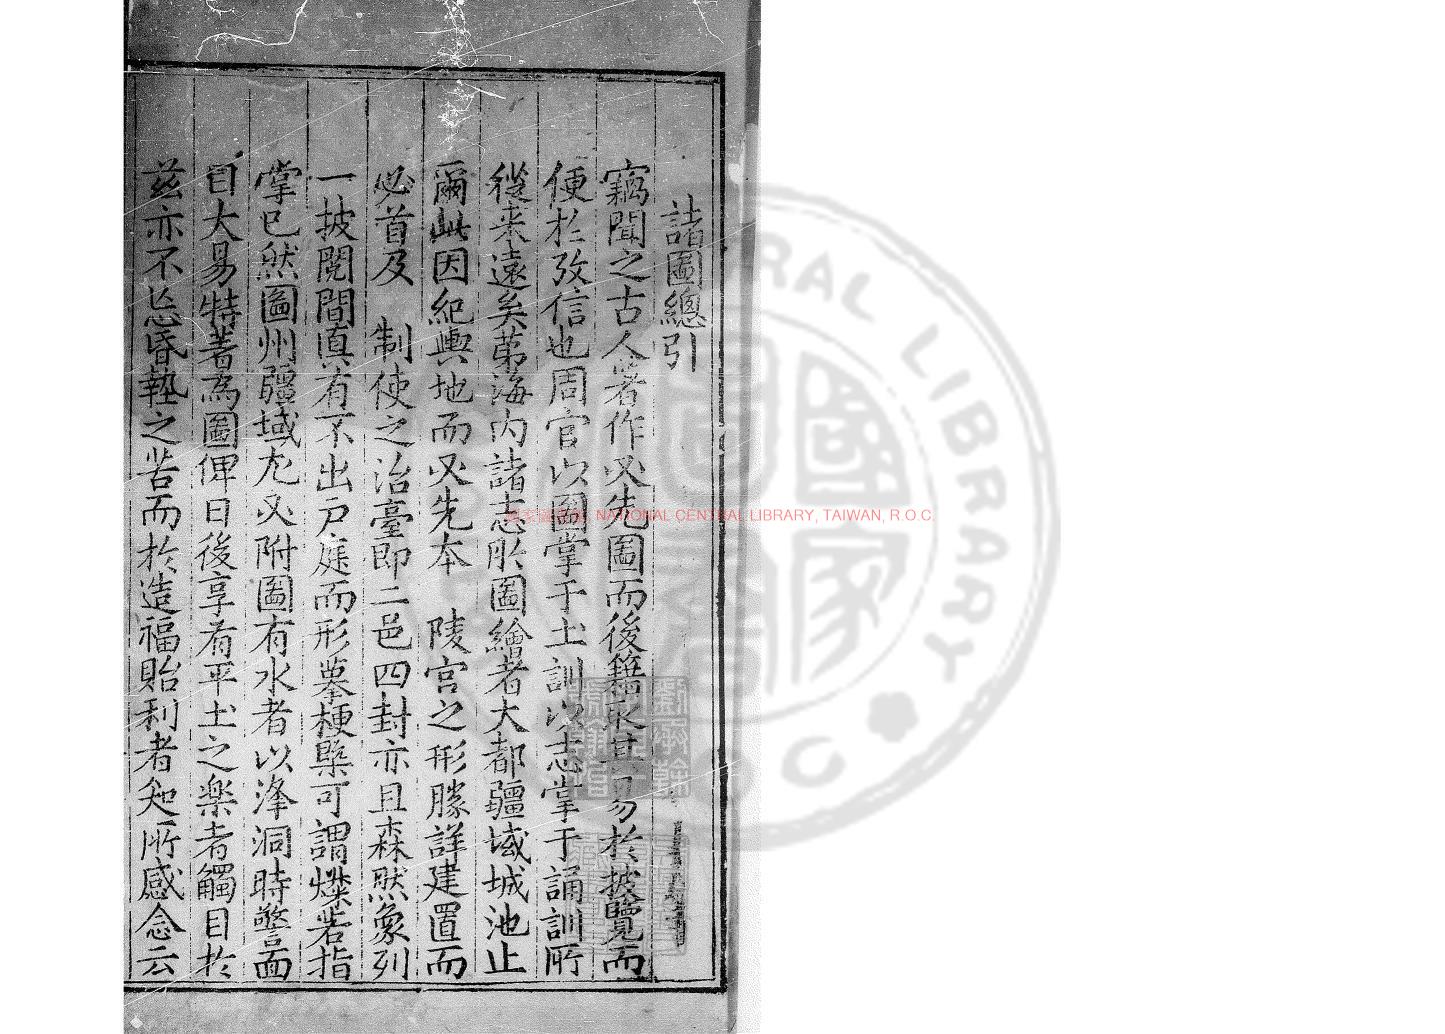 諸圖總引
竊聞之古人著作必先圖而後籍取其易於披覽而
便於攷信也周官以圖掌于土訓以志掌于誦訓所
從来遠矣苐海内諸志所圖繪者大都疆域城池止
爾此因紀輿地而必先本 陵宮之形勝詳建置而
必首及 制使之治臺即二邑四封亦且森然象列
一披閱間真有不出戸庭而形摹梗槩可謂燦若指
掌巳然圖州疆域尤必附圖有水者以洚洞時警面
目大易特著為圖俾日後享有平土之樂者觸目於
兹亦不忘昏墊之苦而於造福貽利者知所感念云
國家圖書館, NATIONAL CENTRAL LIBRARY, TAIWAN, R.O.C.